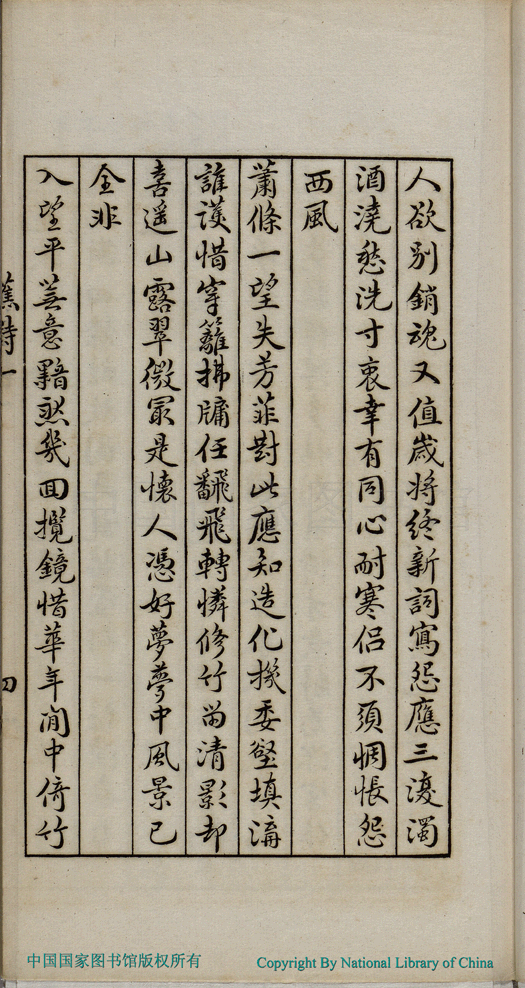 人欲別銷魂又值歲將終新詞寫怨應三復濁
酒澆愁洗寸衷幸有同心耐寒侶不須惆悵怨
西風
蕭條一望失芳菲對此應知造化機委壑填溝
誰護惜穿籬拂牖任翻飛轉憐修竹留清影却
喜遥山露翠微最是懷人憑好夢夢中風景已
全非
入望平蕪意黯然幾回攬鏡惜華年閒中倚竹
蕉詩一
中国国家图书馆版权所有
Copyright By National Library of China